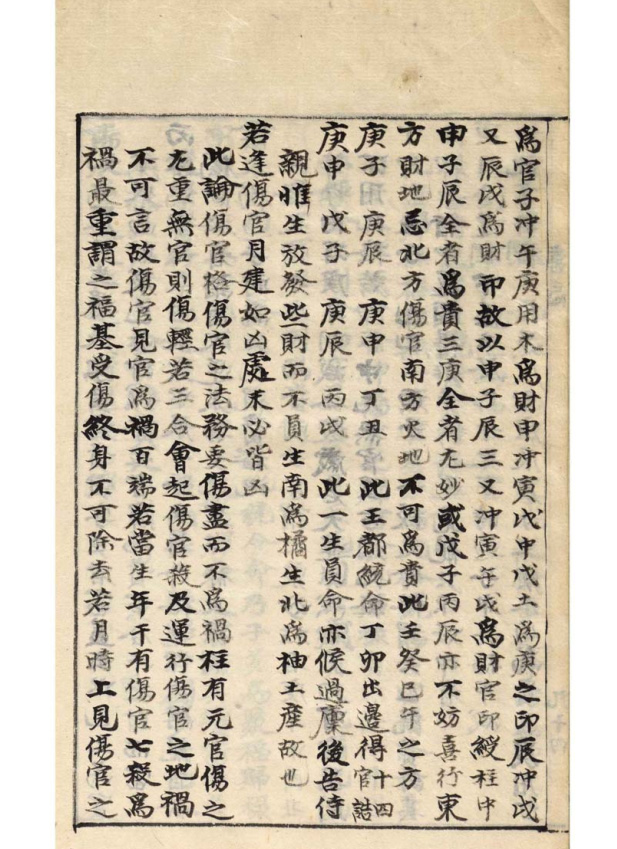 為官子冲午庚用木為財申冲寅戊中戊土為庚之印辰冲戌
又辰戌為財印故以申子辰三又冲寅午戌為財官印綬柱中
申子辰全者為貴三庚全者尤妙或戊子丙辰亦不妨喜行東
方財地忌北方傷官南方火地不可為貴此壬癸巳午之方
庚子 庚辰 庚申 丁丑 此王都統命丁卯出邊得官十四誥
庚申 戊子 庚辰 丙戌 此一生員命亦候過廩後告侍
親惟生放發些財而不員生南為橘生北為柚土產故也
若逢傷官月建如凶處未必皆凶
此論傷官格傷官之法務要傷盡而不為禍柱有元官傷之
尤重無官則傷輕若三合會起傷官殺及運行傷官之地禍
不可言故傷官見官為禍百端若當生年干有傷官七殺為
禍最重謂之福基受傷終身不可除去若月時上見傷官之